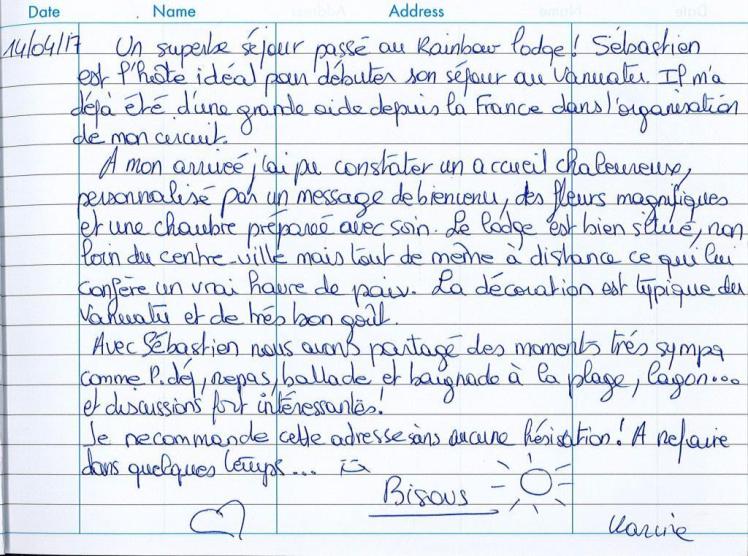 Date Name Address
14/04/17 Un superbe séjour passé au Rainbow lodge! Sébastien
est l'hôte idéal pour débuter son séjour au Vanuatu. Il m'a
déjà été d'une grande aide depuis la France dans l'organisation
de mon circuit.
A mon arrivée j'ai pu constater un accueil chaleureux,
personnalisé par un message de bienvenu, des fleurs magnifiques
et une chambre préparée avec soin. Le lodge est bien situé, non
loin du centre-ville mais tout de même à distance ce qui lui
confère un vrai havre de paix. La décoration est typique du
Vanuatu et de très bon goût.
Avec Sébastien nous avons partagé des moments très sympa
comme P.déj, repas, ballade et baignade à la plage, lagon...
et discussions fort intéressantes!
Je recommande cette adresse sans aucune hésitation! A refaire
dans quelques temps...
Bisous
Karine